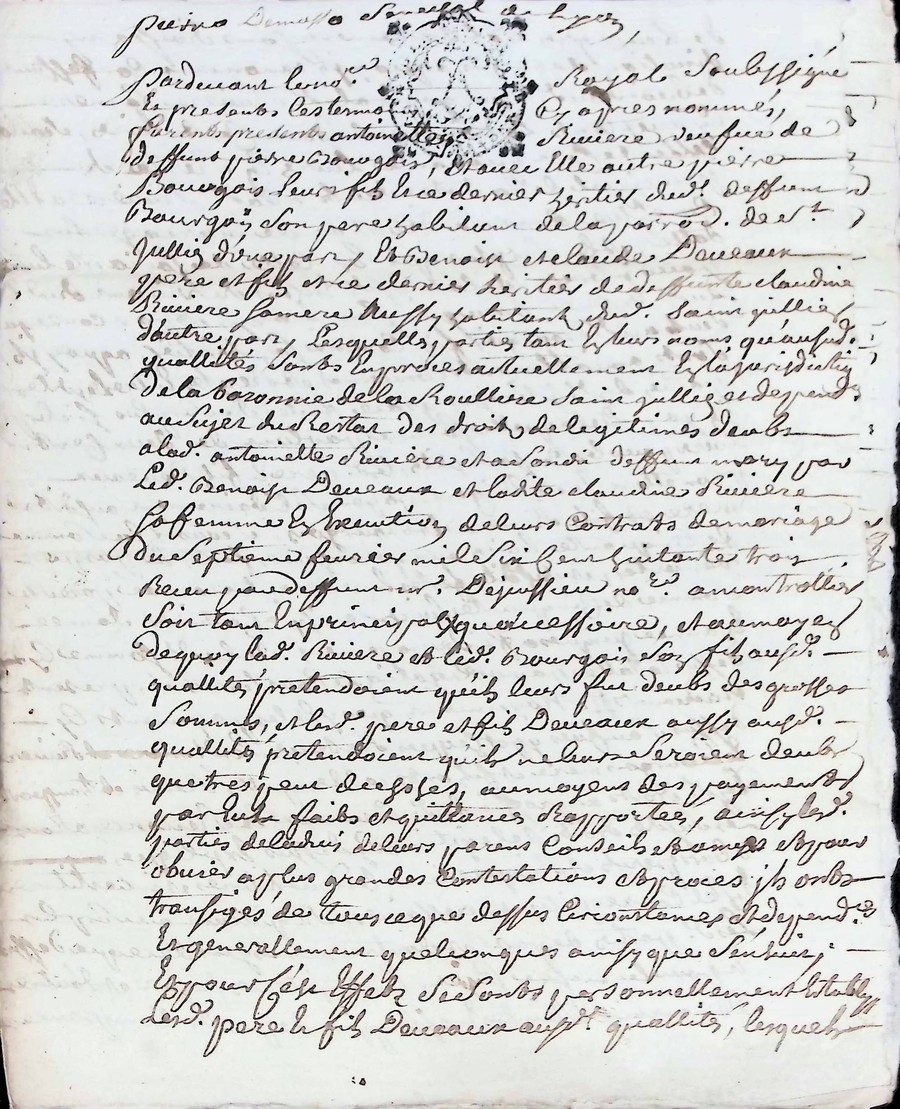 pierre Demasso Seneschal de Lyon,
Pardevant le no.re Royal Soubssigné
Et presents les temoins Cy apres nommés,
furents presents antoinette Riviere veufue de
deffunt pierre Bourgois, et avec Elle autre pierre
Bourgois leur fils Et ce dernier heritier dud. deffunt
Bourgois son pere habitant de la parroi. de S.t
Jullin d'une part, Et Benoist et claude Deveaux
pere et fils et ce dernier heritier de deffunte claudine
Riviere sa mere Aussy habitants dud. Saint Jullien
d'autre part, Lesquelles parties tant En leurs noms qu'ausd.
quallités sonts En procès actuellement En la jurisdiction
de la Baronnie de la Roulliere Saint Jullin et depend.
au Sujet du Restat des droits de legitimes deubs
a lad. antoinette Riviere et a son dit deffunt mary par
Led. Benoist Deveaux et ladite claudine Riviere
sa femme En Execution de leurs Contrats de mariage
du Septieme fevrier mil Six Cent huitante trois
Receu par deffunt m.e Dejussieu no.re a montrottier
Soit tant En principal qu'accessoire, et au moyen
de quoy lad. Riviere et led. Bourgois Son fils ausd.
quallités pretendoient qu'ils leurs fut deubs des grosses
Sommes, et lesd. pere et fils Deveaux aussy ausd.
quallités pretendoient qu'ils ne leurs Seroient deubs
que tres peut d'icelles, au moyens des payements
par Eux faits et quittances Rapportées, ainsy lesd.
parties de l'advis de leurs parens Conseils et amys et pour
obvier a plus grandes Contestations et proces ils onts
transigés de tous ce que dessus Circonstances et depend.ces
Et generallement quelconques ainsy que S'ensuit;
Et pour C'est Effets Se Sonts personnellement Establys
Lesd. pere et fils Deveaux ausd. quallités, lesquels